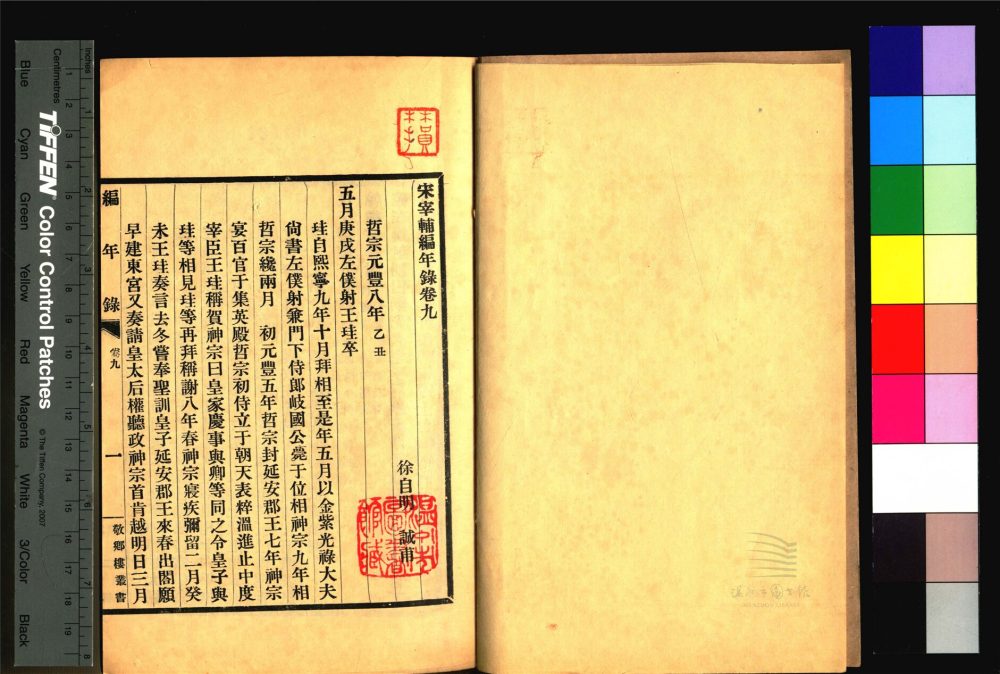 宋宰輔編年錄卷九
徐自明 誠甫
哲宗元豐八年乙丑
五月庚戌左僕射王珪卒
珪自熙寧九年十月拜相至是年五月以金紫光祿大夫
尙書左僕射兼門下侍郎岐國公薨于位相神宗九年相
哲宗纔兩月 初元豐五年哲宗封延安郡王七年神宗
宴百官于集英殿哲宗初侍立于朝天表粹溫進止中度
宰臣王珪稱賀神宗曰皇家慶事與卿等同之令皇子與
珪等相見珪等再拜稱謝八年春神宗寢疾彌留二月癸
未王珪奏言去冬嘗奉聖訓皇子延安郡王來春出閣願
早建東宮又奏請皇太后權聽政神宗首肯越明日三月
編年錄 卷九 一 敬鄉樓叢書
溫州市圖書館藏
Inches
Centimetres
TIFFEN Color Control Patches
© The Tiffen Company, 2007
Blue Cyan Green Yellow Red Magenta White 3/Color Black
1 2 3 4 5 6 7 8
1 2 3 4 5 6 7 8 9 10 11 12 13 14 15 16 17 18 19
WENZHOU LIBRARY